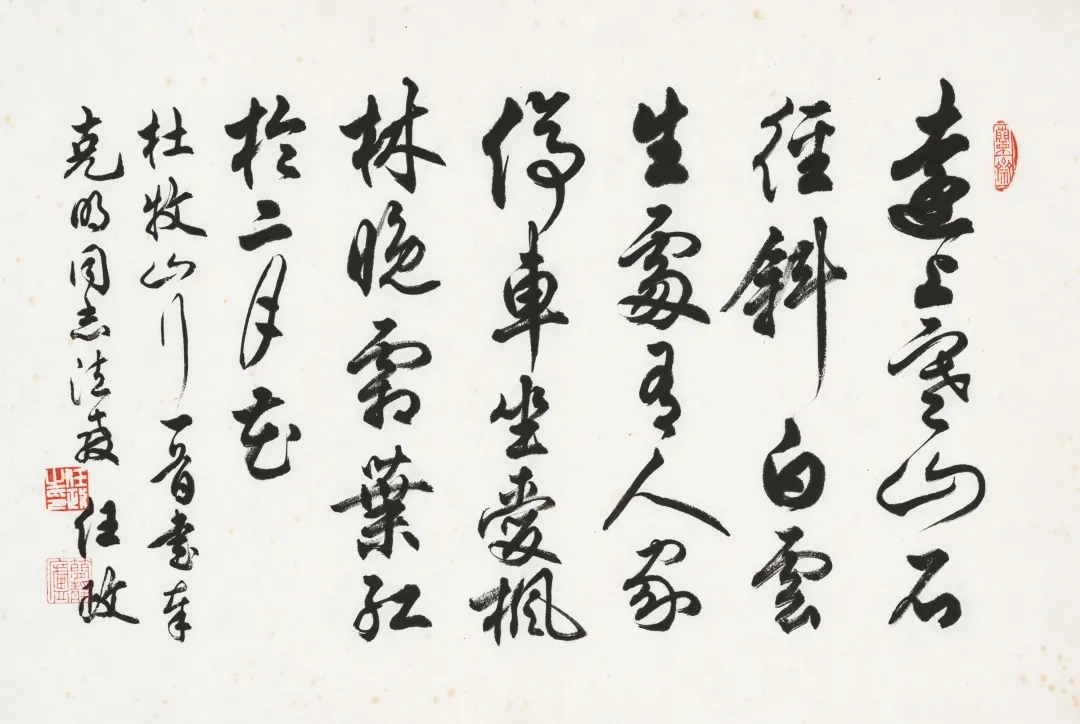 遠上寒山石
徑斜白雲
生處有人家
停車坐愛楓
林晚霜葉紅
於二月花
杜牧山行一首書奉
克明同志法教 任政